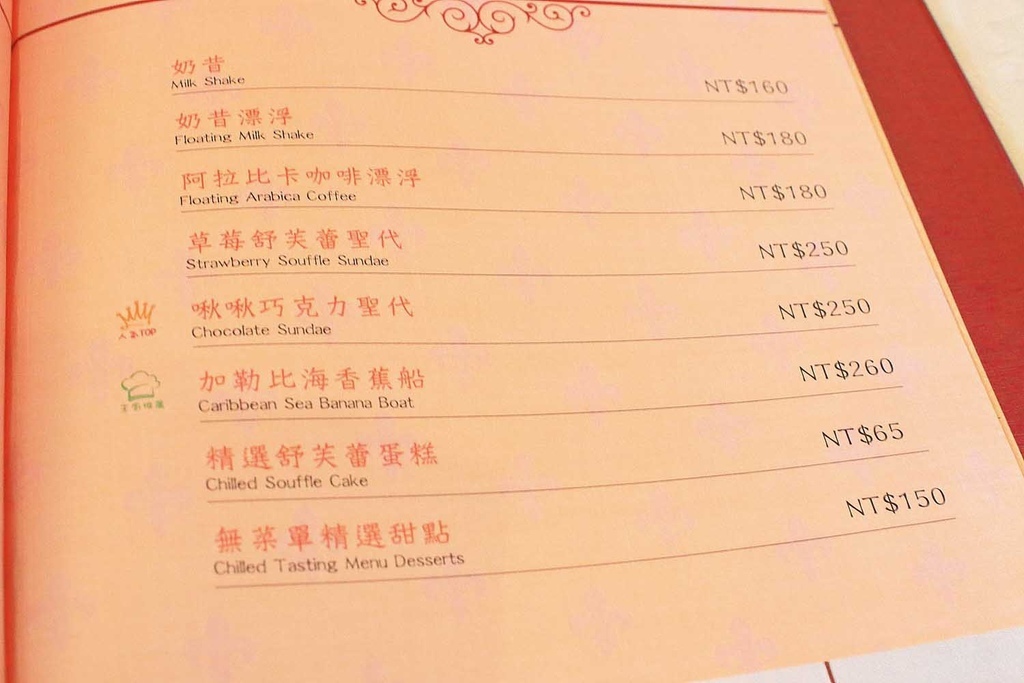 奶昔
Milk Shake
NT$160
奶昔漂浮
Floating Milk Shake
NT$180
阿拉比卡咖啡漂浮
Floating Arabica Coffee
NT$180
草莓舒芙蕾聖代
Strawberry Souffle Sundae
NT$250
人氣TOP
啾啾巧克力聖代
Chocolate Sundae
NT$250
主廚推薦
加勒比海香蕉船
Caribbean Sea Banana Boat
NT$260
精選舒芙蕾蛋糕
Chilled Souffle Cake
NT$65
無菜單精選甜點
Chilled Tasting Menu Desserts
NT$150